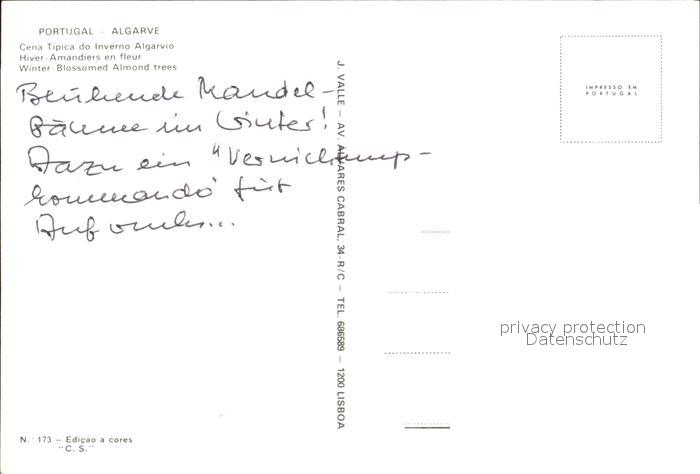 PORTUGAL - ALGARVE
Cena Tipica do Inverno Algarvio
Hiver-Amandiers en fleur
Winter-Blossomed Almond trees
Mandel-
Bäume im Winter!
Dazu ein "Vernichtungs-
kommando" für
J. VALLE — AV. ALVARES CABRAL, 34-R/C — TEL. 686589 — 1200 LISBOA
IMPRESSO EM
PORTUGAL
privacy protection
Datenschutz
N.º 173 — Edição a cores
"C. S."